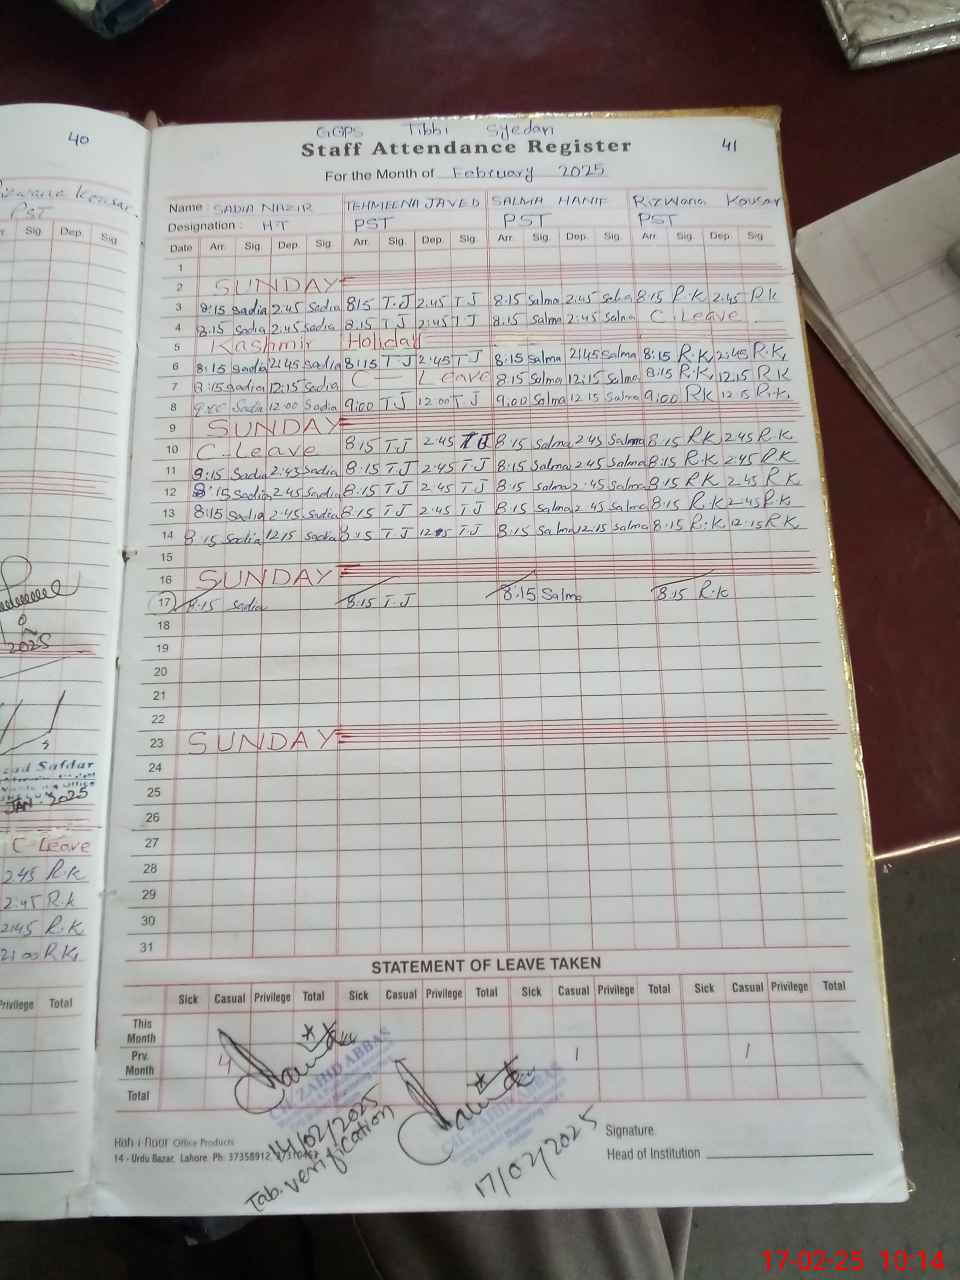 40
GGPS Tibbi Syedan
Staff Attendance Register 41
For the Month of February 2025
Name: SADIA NAZIR TEHMEENA JAVED SALMA HANIF Rizwana Kousar
Designation: HT PST PST PST
Date Arr. Sig. Dep. Sig. Arr. Sig. Dep. Sig. Arr. Sig. Dep. Sig. Arr. Sig. Dep. Sig
1
2 SUNDAY
3 8:15 Sadia 2:45 Sadia 8:15 T.J 2:45 T J 8:15 Salma 2:45 Salma 8:15 R.K 2:45 R K
4 8:15 Sadia 2:45 Sadia 8.15 T J 2:45 T J 8.15 Salma 2:45 Salma C.Leave.
5 Kashmir Holiday
6 8:15 Sadia 2:45 Sadia 8:15 T J 2:45 T J 8:15 Salma 2:45 Salma 8:15 R.K 2:45 R.K
7 8:15 Sadia 12:15 Sadia C— Leave 8:15 Salma 12:15 Salma 8:15 R.K 12.15 R K
8 Sadia 12:00 Sadia 9:00 T J 12:00 T J 9:00 Salma 12 15 Salma 9:00 RK R.K
9 SUNDAY
10 C-Leave 8:15 T J 2:45 T J 8:15 Salma 2:45 Salma 8:15 R K 2:45 R.K
11 8:15 Sadia 2:45 Sadia 8:15 T J 2:45 T.J 8:15 Salma 2:45 Salma 8:15 R.K 2:45 R K
12 8:15 Sadia 2:45 Sadia 8:15 T J 2.45 T J 8:15 Salma 2:45 Salma 8:15 R K 2.45 R K
13 8:15 Sadia 2:45 Sadia 8:15 T J 2.45 T J 8:15 Salma 2:45 Salma 8:15 R.K 2:45 R.K
14 8 15 Sadia 12 15 Sadia 8:15 T J T.J 8:15 Salma 12:15 Salma 8:15 R.K 12:15 R.K
15
16 SUNDAY
17 8:15 Sadia 8:15 T.J 8:15 Salma 8:15 R.K
18
19
20
21
22
23 SUNDAY
24
25
26
27
28
29
30
31
STATEMENT OF LEAVE TAKEN
Sick Casual Privilege Total Sick Casual Privilege Total Sick Casual Privilege Total Sick Casual Privilege Total
This Month
Prv. Month 4 1 1
Total
ZAHID ABBAS
14/02/2025
Tab. verification
17/02/2025
Signature
Head of Institution
Office Products
14 - Urdu Bazar, Lahore. Ph: 37358912
Rizwana Kousar.
PST
Sig. Dep. Sig.
2025
Safdar
JAN 2025
C Leave
2:45 R.K
2:45 R.K
2:45 R.K
R.K
Privilege Total
17-02-25 10:14